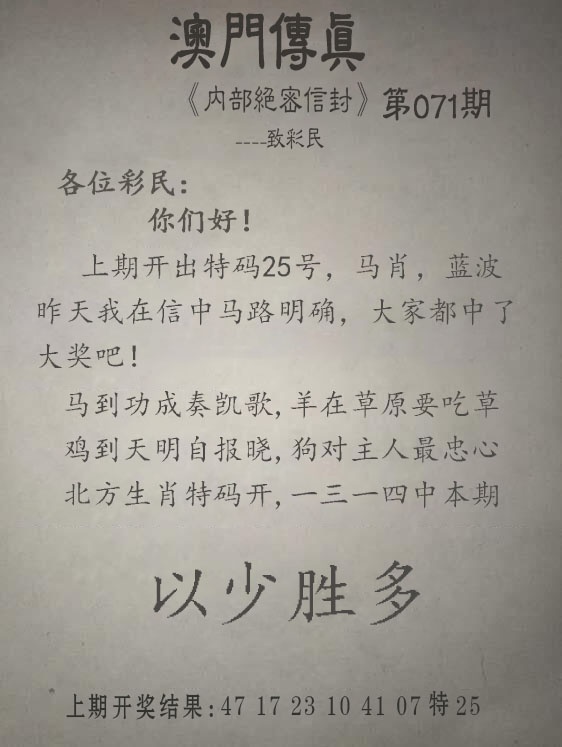 澳門傳真
《内部絕密信封》第071期
----致彩民
各位彩民：
你们好！
上期开出特码25号，马肖，蓝波
昨天我在信中马路明确，大家都中了
大奖吧！
马到功成奏凯歌,羊在草原要吃草
鸡到天明自报晓,狗对主人最忠心
北方生肖特码开,一三一四中本期
以少胜多
上期开奖结果:47 17 23 10 41 07 特 25